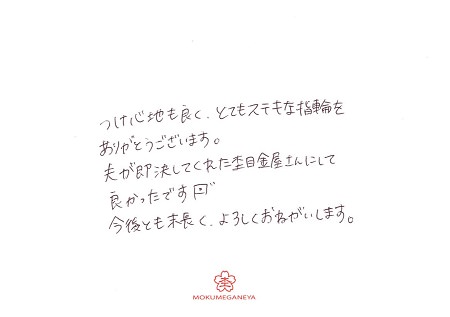 つけ心地も良く、とてもステキな指輪を
ありがとうございます。
夫が即決してくれた杢目金屋さんにして
良かったです
今後とも末長く、よろしくおねがいします。
杢
MOKUMEGANEYA